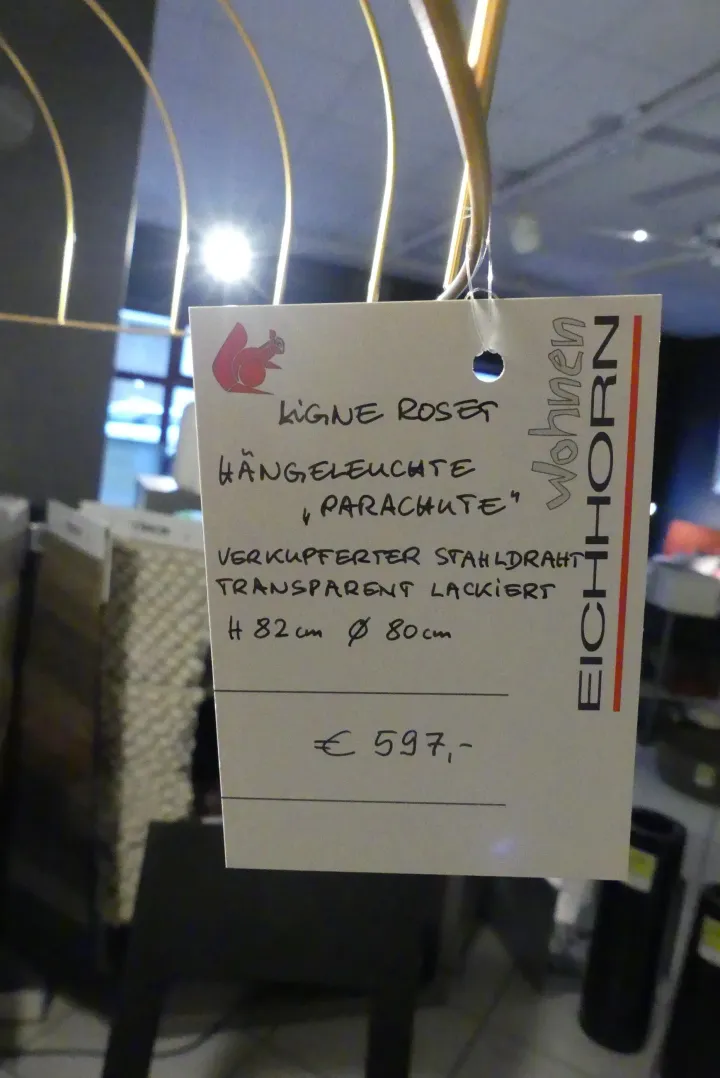 LIGNE ROSET
HÄNGELEUCHTE
„PARACHUTE“
VERKUPFERTER STAHLDRAHT
TRANSPARENT LACKIERT
H 82 cm Ø 80 cm
€ 597,-
Wohnen
EICHHORN